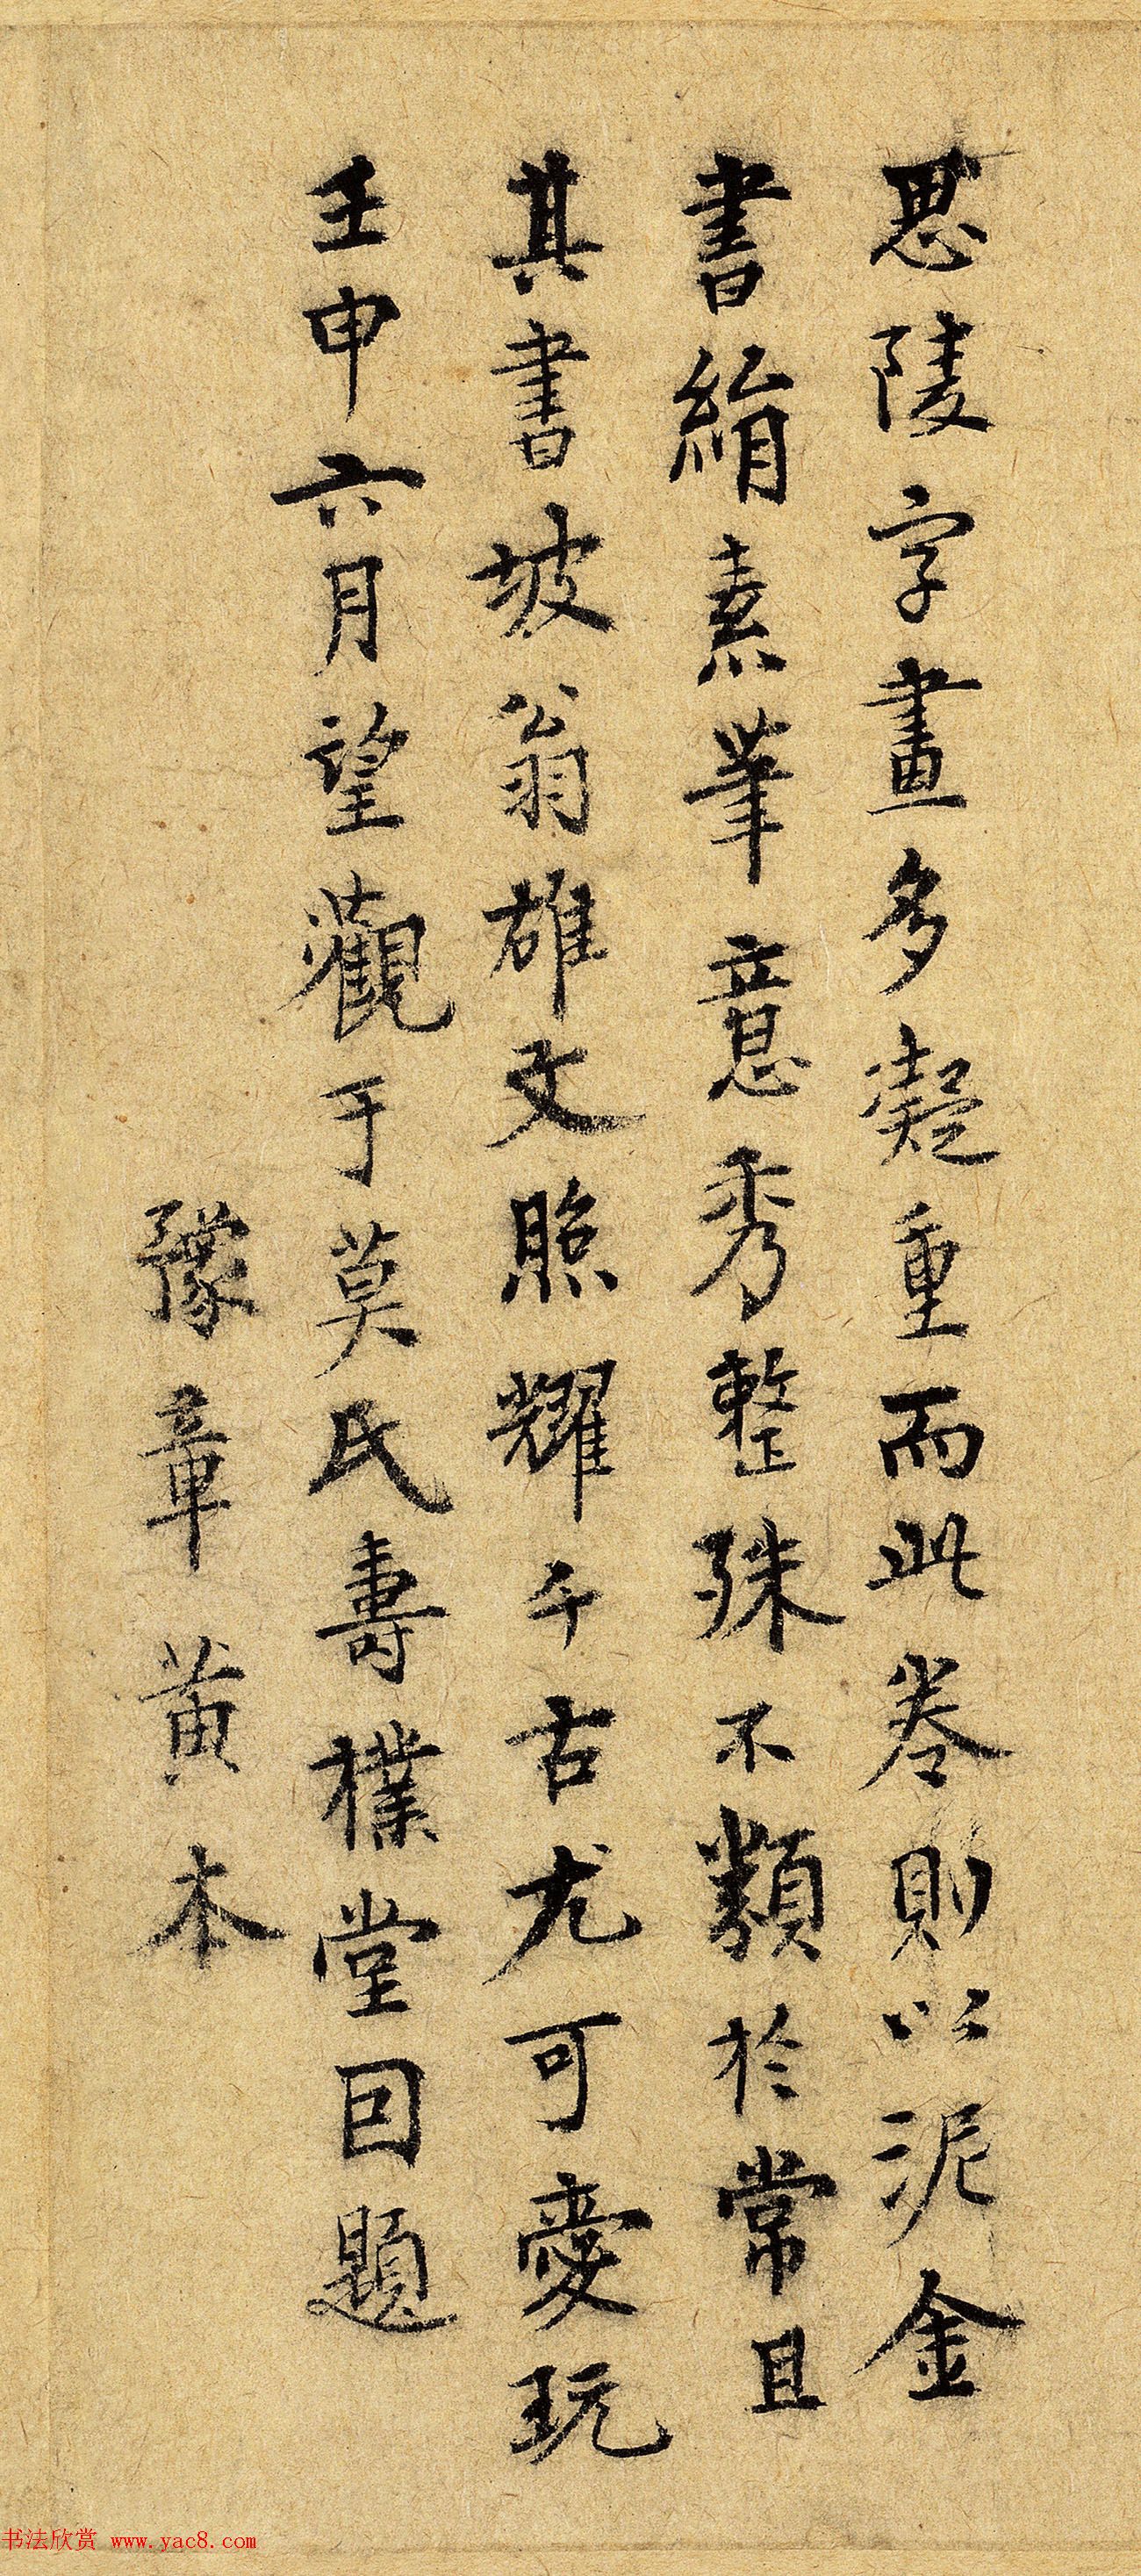 思陵字畫多凝重而此卷則以泥金
書絹素筆意秀整殊不類於常且
其書坡翁雄文照耀千古尤可愛玩
壬申六月望觀于莫氏壽樸堂因題
豫章黃本
书法欣赏 www.yac8.com